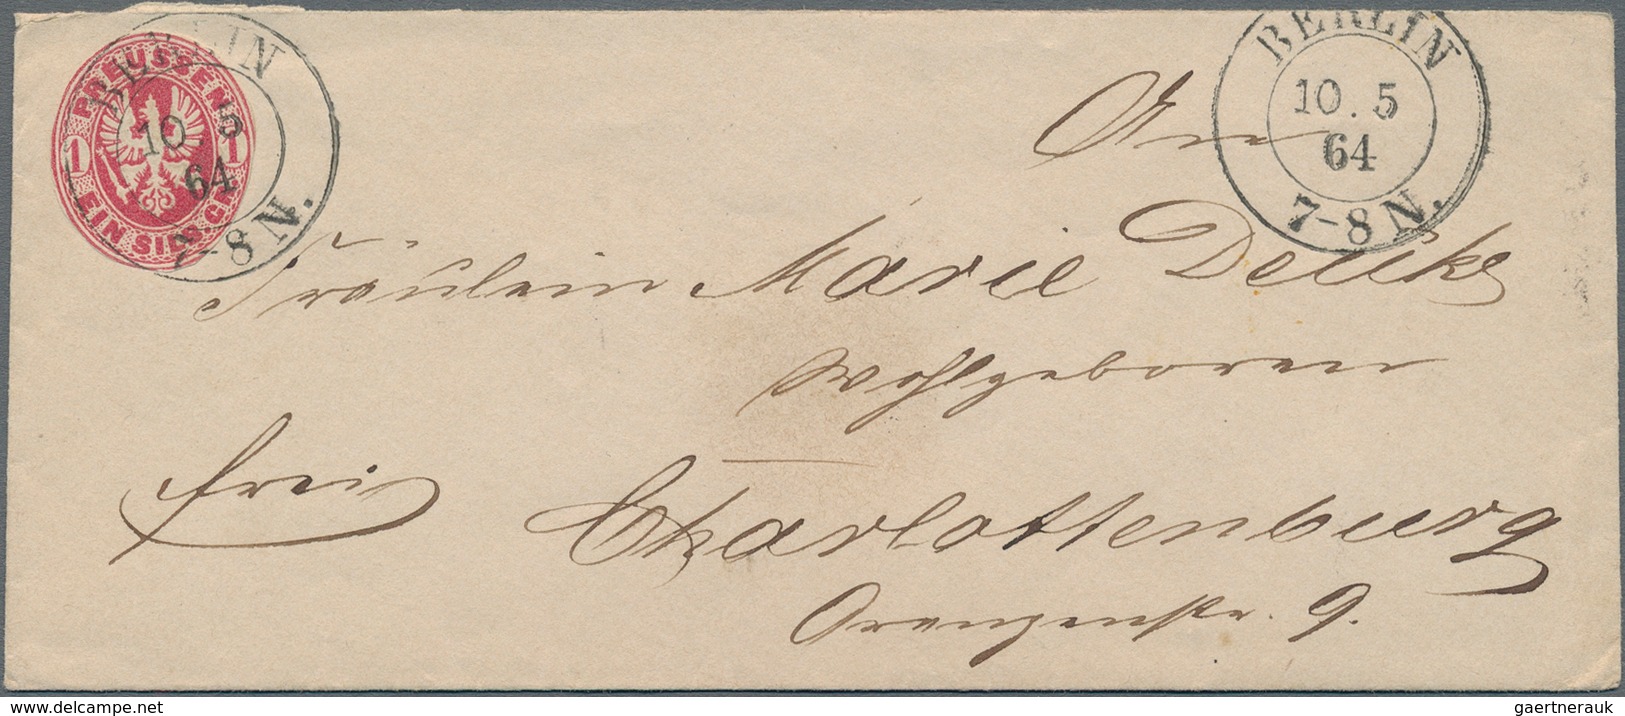 PREUSSEN
1 1
EIN SILB. GR.
BERLIN
10 5
64
7-8 N.
BERLIN
10. 5
64
7-8 N.
An
Fräulein Marie
Wohlgeboren
frei
Charlottenburg
Orangenstr. 9.
www.delcampe.net
gaertnerauk